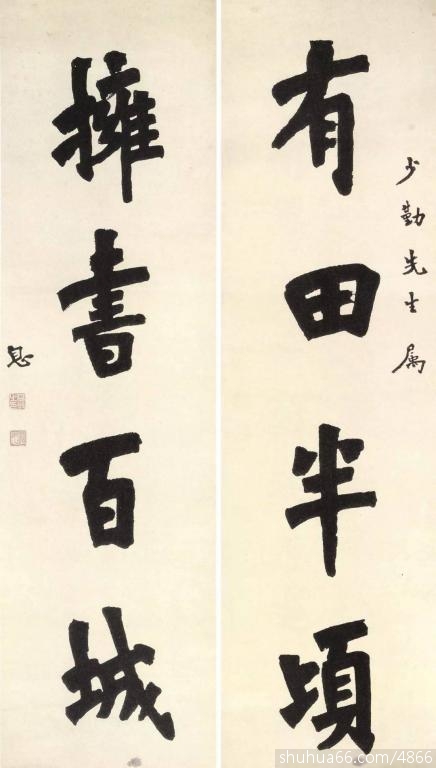 少勤先生属
有田半頃
擁書百城
shuhua66.com/4866